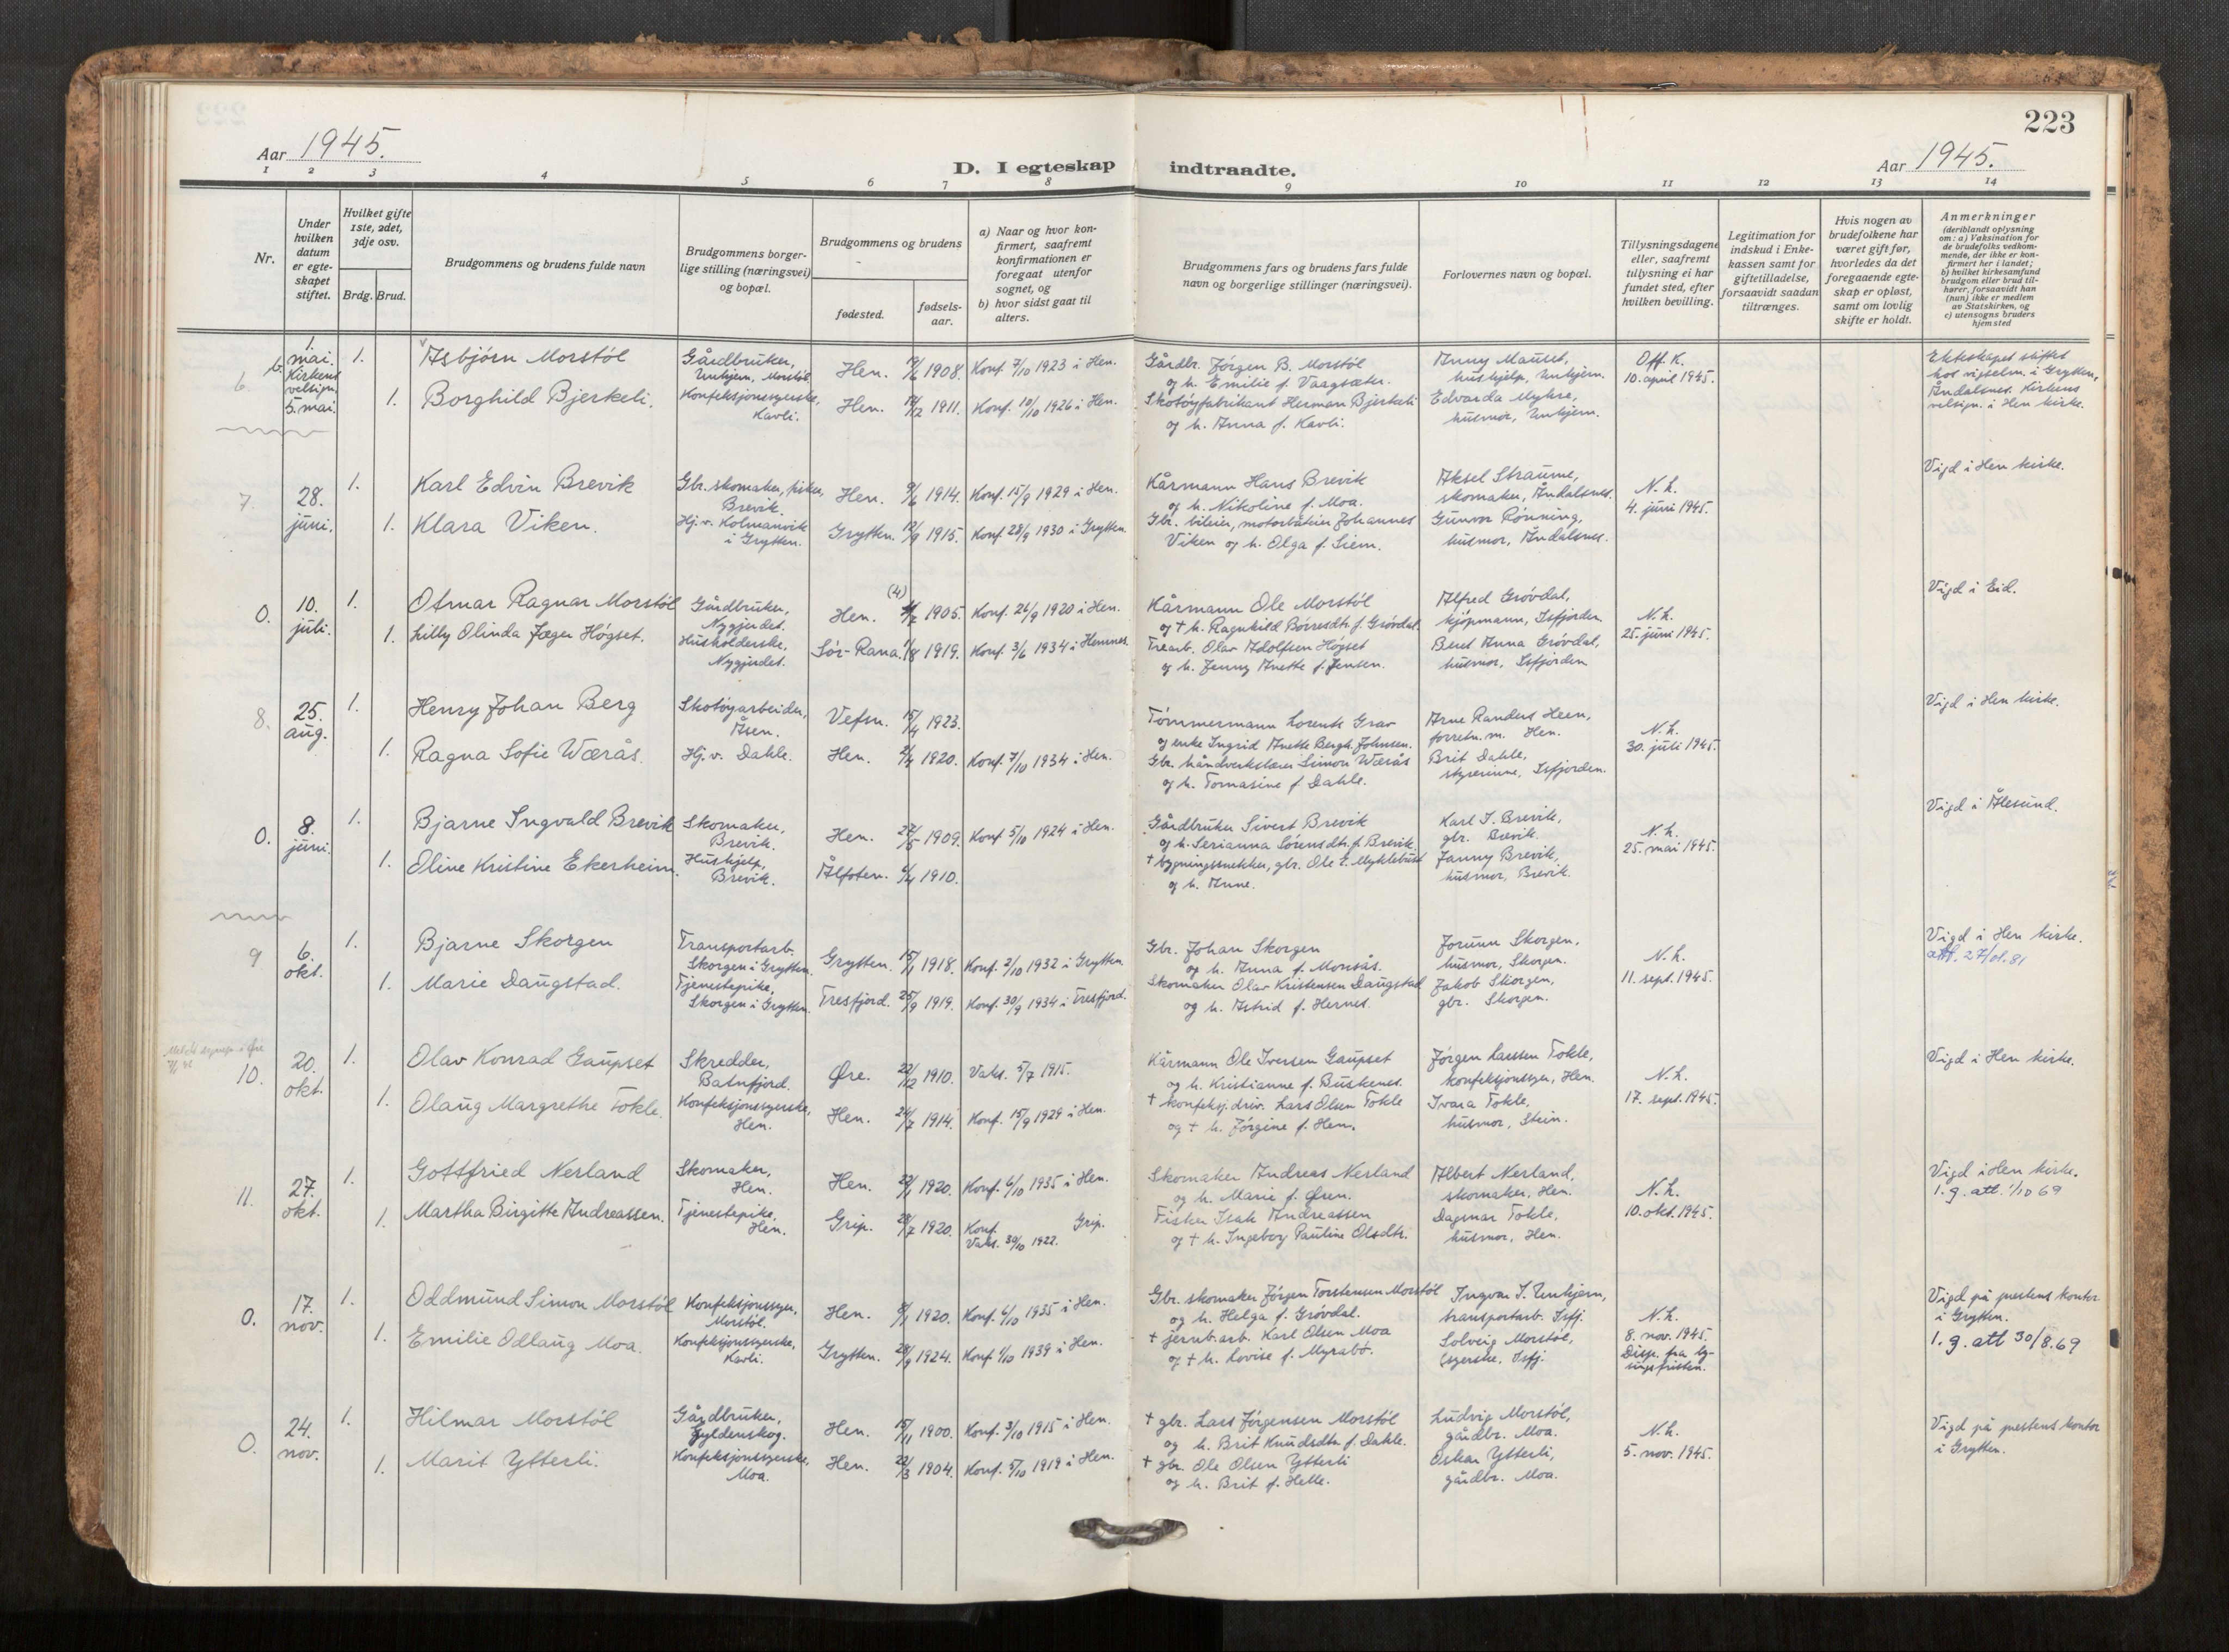 223
Aar 1945.
D. I egteskap indtraadte.
Aar 1945.
1 2 3 4 5 6 7 8 9 10 11 12 13 14
Nr.
Under hvilken datum er egte-skapet stiftet.
Hvilket gifte 1ste, 2det, 3dje osv.
Brdg. Brud.
Brudgommens og brudens fulde navn
Brudgommens borger-
lige stilling (næringsvei)
og bopæl.
Brudgommens og brudens
fødested.
fødsels-
aar.
a) Naar og hvor kon-
firmert, saafremt
konfirmationen er
foregaat utenfor
sognet, og
b) hvor sidst gaat til
alters.
Brudgommens fars og brudens fars fulde
navn og borgerlige stillinger (næringsvei).
Forlovernes navn og bopæl.
Tillysningsdagene
eller, saafremt
tillysning ei har
fundet sted, efter
hvilken bevilling.
Legitimation for
indskud i Enke-
kassen samt for
giftetilladelse,
forsaavidt saadan
tiltrænges.
Hvis nogen av
brudefolkene har
været gift før,
hvorledes da det
foregaaende egte-
skap er opløst,
samt om lovlig
skifte er holdt.
Anmerkninger
(deriblandt oplysning
om: a) Vaksination for
de brudefolks vedkom-
mende, der ikke er kon-
firmert her i landet;
b) hvilket kirkesamfund
brudgom eller brud til-
hører, forsaavidt han
(hun) ikke er medlem
av Statskirken, og
c) utensogns bruders
hjemsted
6.
1.
mai.
Kirkens
velsign.
5. mai.
1.
Asbjørn Morstøl
Gårdbruker,
Unhjem, Morstøl.
Hen. 19/6 1908. Konf. 7/10 1923 i Hen.
Gårdbr. Jørgen B. Morstøl
og h. Emilie f. Vaagsæter.
Anny Mauset,
hushjelp, Unhjem.
Off. K.
10. april 1945.
Ekteskapet stiftet
hos vigselm. i Grytten,
Åndalsnes. Kirkens
velsign. i Hen kirke.
1. Borghild Bjerkeli.
Konfeksjonssyerske,
Kavli.
Hen. 12/12 1911. Konf. 10/10 1926 i Hen.
Skotøyfabrikant Herman Bjerkeli
og h. Anna f. Kavli.
Edvarda Myhre,
husmor, Unhjem.
7.
28.
juni.
1. Karl Edvin Brevik
Gbr. skomaker, fisker,
Brevik.
Hen. 9/6 1914. Konf. 15/9 1929 i Hen.
Kårmann Hans Brevik
og h. Nikoline f. Moa.
Aksel Straume,
skomaker, Åndalsnes.
N. L.
4. juni 1945.
Vigd i Hen kirke.
1. Klara Viken.
Hj. v. Kolmannvik
i Grytten.
Grytten. 12/9 1915. Konf. 28/9 1930 i Grytten.
Gbr. bileier, motorbåteier Johannes
Viken og h. Olga f. Siem.
Gunvor Rønning,
husmor, Åndalsnes.
0.
10.
juli.
1. Otmar Ragnar Morstøl
Gårdbruker,
Nygjerdet.
Hen. (4) 4/7 1905. Konf. 26/9 1920 i Hen.
Kårmann Ole Morstøl
og † h. Ragnhild Børresdtr. f. Grøvdal.
Alfred Grøvdal,
kjøpmann, Isfjorden.
N. L.
25. juni 1945.
Vigd i Eid.
1. Lilly Olinda Jæger Høgset.
Husholderske,
Nygjerdet.
Sør-Rana. 1/8 1919. Konf. 3/6 1934 i Hemnes.
Trearb. Olav Adolfsen Høgset
og h. Jenny Anette f. Jensen.
Berit Anna Grøvdal,
husmor, Isfjorden
8.
25.
aug.
1. Henry Johan Berg
Skotøyarbeider,
Åsen.
Vefsn. 15/4 1923.
Tømmermann Lorents Grav
og enke Ingrid Anette Bergh. Johnsen.
Arne Randers Heen,
forretn. m. Hen.
N. L.
30. juli 1945.
Vigd i Hen kirke.
1. Ragna Sofie Wærås.
Hj. v. Dahle.
Hen. 2/4 1920. Konf. 7/10 1934 i Hen.
Gbr. håndverkslærer Simon Wærås
og h. Tomasine f. Dahle.
Brit Dahle,
styrerinne, Isfjorden.
0.
8.
juni.
1. Bjarne Ingvald Brevik
Skomaker,
Brevik.
Hen. 27/5 1909. Konf. 5/10 1924 i Hen.
Gårdbruker Sivert Brevik
og h. Serianna Sørensdtr. f. Brevik.
Karl I. Brevik,
gbr. Brevik.
N. L.
25. mai 1945.
Vigd i Ålesund.
1. Oline Kristine Ekerheim.
Hushjelp,
Brevik.
Ålfoten. 6/4 1910.
† bygningssnekker, gbr. Ole E. Myklebust
og h. Anne.
Janny Brevik,
husmor, Brevik.
9
6.
okt.
1. Bjarne Skorgen
Transportarb.
Skorgen i Grytten.
Grytten. 15/1 1918. Konf. 2/10 1932 i Grytten.
Gbr. Johan Skorgen
og h. Anna f. Monsås.
Jorunn Skorgen,
husmor, Skorgen.
N. L.
11. sept. 1945.
Vigd i Hen kirke.
att. 27/01.81
1. Marie Daugstad.
Tjenestepike,
Skorgen i Grytten.
Tresfjord. 25/9 1919. Konf. 30/9 1934 i Tresfjord.
Skomaker Olav Kristensen Daugstad
og h. Astrid f. Hernes.
Jakob Skorgen,
gbr. Skorgen.
10.
20.
okt.
1. Olav Konrad Gaupset
Skredder,
Batnfjord.
Øre. 22/12 1910. Vaks. 5/7 1915.
Kårmann Ole Iversen Gaupset
og h. Kristianne f. Buskenes.
Jørgen Larssen Tokle,
konfeksjonssyer, Hen.
N. L.
17. sept. 1945.
Vigd i Hen kirke.
1. Olaug Margrethe Tokle.
Konfeksjonssyerske,
Hen.
Hen. 24/7 1914. Konf. 15/9 1929 i Hen.
† konfeksj.driv. Lars Olsen Tokle
og † h. Jørgine f. Hen.
Ivara Tokle,
husmor, Stein.
11.
27.
okt.
1. Gottfried Nerland
Skomaker,
Hen.
Hen. 22/1 1920. Konf. 6/10 1935 i Hen.
Skomaker Andreas Nerland
og h. Marie f. Øren.
Albert Nerland,
skomaker, Hen.
N. L.
10. okt. 1945.
Vigd i Hen kirke.
1. g. att. 1/10 69
1. Martha Birgitte Andreassen.
Tjenestepike,
Hen.
Grip. 28/7 1920. Konf. Grip.
Vaks. 30/10 1922.
Fisker Isak Andreassen
og † h. Ingeborg Pauline Olsdtr.
Dagmar Tokle,
husmor, Hen.
0.
17.
nov.
1. Oddmund Simon Morstøl
Konfeksjonssyer,
Morstøl.
Hen. 8/1 1920. Konf. 6/10 1935 i Hen.
Gbr. skomaker Jørgen Torstensen Morstøl
og h. Helga f. Grøvdal.
Ingvar S. Unhjem,
transportarb. Isfj.
N. L.
8. nov. 1945.
Disp. fra ly-
singsfristen.
Vigd på prestens kontor
i Grytten.
1. g. att 30/8.69
1. Emilie Odlaug Moa.
Konfeksjonssyerske,
Kavli.
Grytten. 28/9 1924. Konf. 1/10 1939 i Hen.
† jernb.arb. Karl Olsen Moa
og † h. Lovise f. Myrabø.
Solveig Morstøl,
syerske, Isfj.
0.
24.
nov.
1. Hilmar Morstøl
Gårdbruker,
Gyldenskog.
Hen. 15/11 1900. Konf. 3/10 1915 i Hen.
† gbr. Lars Jørgensen Morstøl
og h. Brit Knudsdtr. f. Dahle.
Ludvig Morstøl,
gårdbr. Moa.
N. L.
5. nov. 1945.
Vigd på prestens kontor
i Grytten.
1. Marit Ytterli.
Konfeksjonssyerske,
Moa.
Hen. 22/3 1904. Konf. 5/10 1919 i Hen.
† gbr. Ole Olsen Ytterli
og h. Brit f. Helle.
Oskar Ytterli,
gårdbr. Moa.